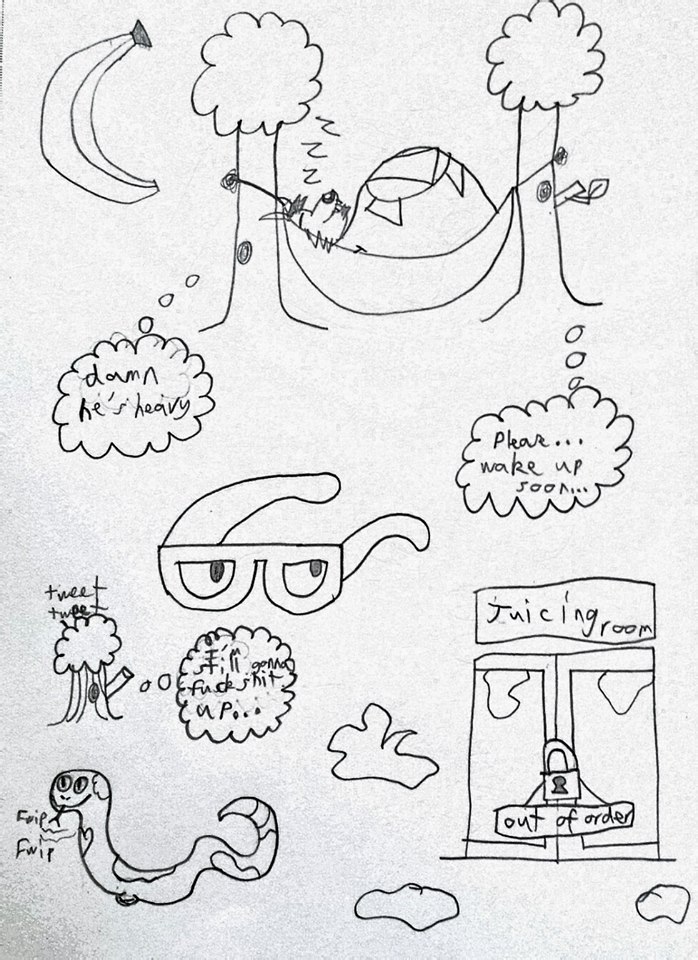 z
z
z
damn
he's heavy
Please...
wake up
soon...
tweet
tweet
I'm gonna
fuck shit
up...
Juicing room
out of order
Fwip
Fwip